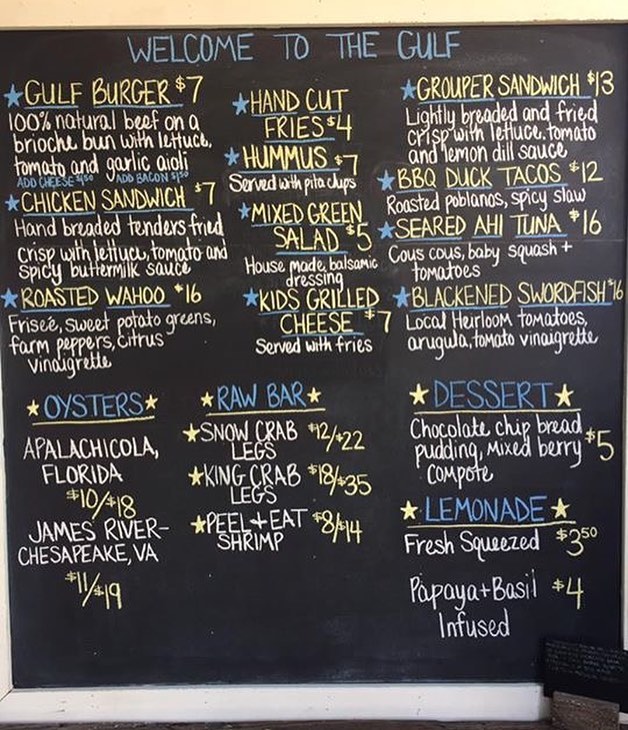 WELCOME TO THE GULF
★GULF BURGER $7
100% natural beef on a
brioche bun with lettuce,
tomato and garlic aioli
ADD CHEESE $1.50 ADD BACON $1.50
★CHICKEN SANDWICH $7
Hand breaded tenders fried
crisp with lettuce, tomato and
spicy buttermilk sauce
★ROASTED WAHOO $16
Friseé, sweet potato greens,
farm peppers, citrus
vinaigrette
★HAND CUT
FRIES $4
★HUMMUS $7
Served with pita chips
★MIXED GREEN
SALAD $5
House made, balsamic
dressing
★KIDS GRILLED
CHEESE $7
Served with fries
★GROUPER SANDWICH $13
Lightly breaded and fried
crisp with lettuce, tomato
and lemon dill sauce
★BBQ DUCK TACOS $12
Roasted poblanos, spicy slaw
★SEARED AHI TUNA $16
Cous cous, baby squash +
tomatoes
★BLACKENED SWORDFISH $16
Local Heirloom tomatoes,
arugula, tomato vinaigrette
★OYSTERS★
APALACHICOLA,
FLORIDA
$10/$18
JAMES RIVER-
CHESAPEAKE, VA
$11/$19
★RAW BAR★
★SNOW CRAB $12/$22
LEGS
★KING CRAB $18/$35
LEGS
★PEEL + EAT $8/$14
SHRIMP
★DESSERT★
Chocolate chip bread
pudding, mixed berry $5
compote
★LEMONADE★
Fresh Squeezed $3.50
Papaya + Basil $4
Infused